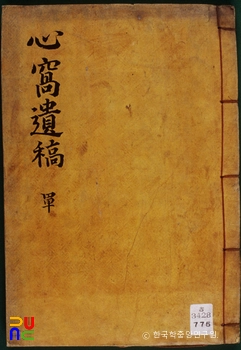 心窩遺稿
單
3428
775
© 한국학중앙연구원